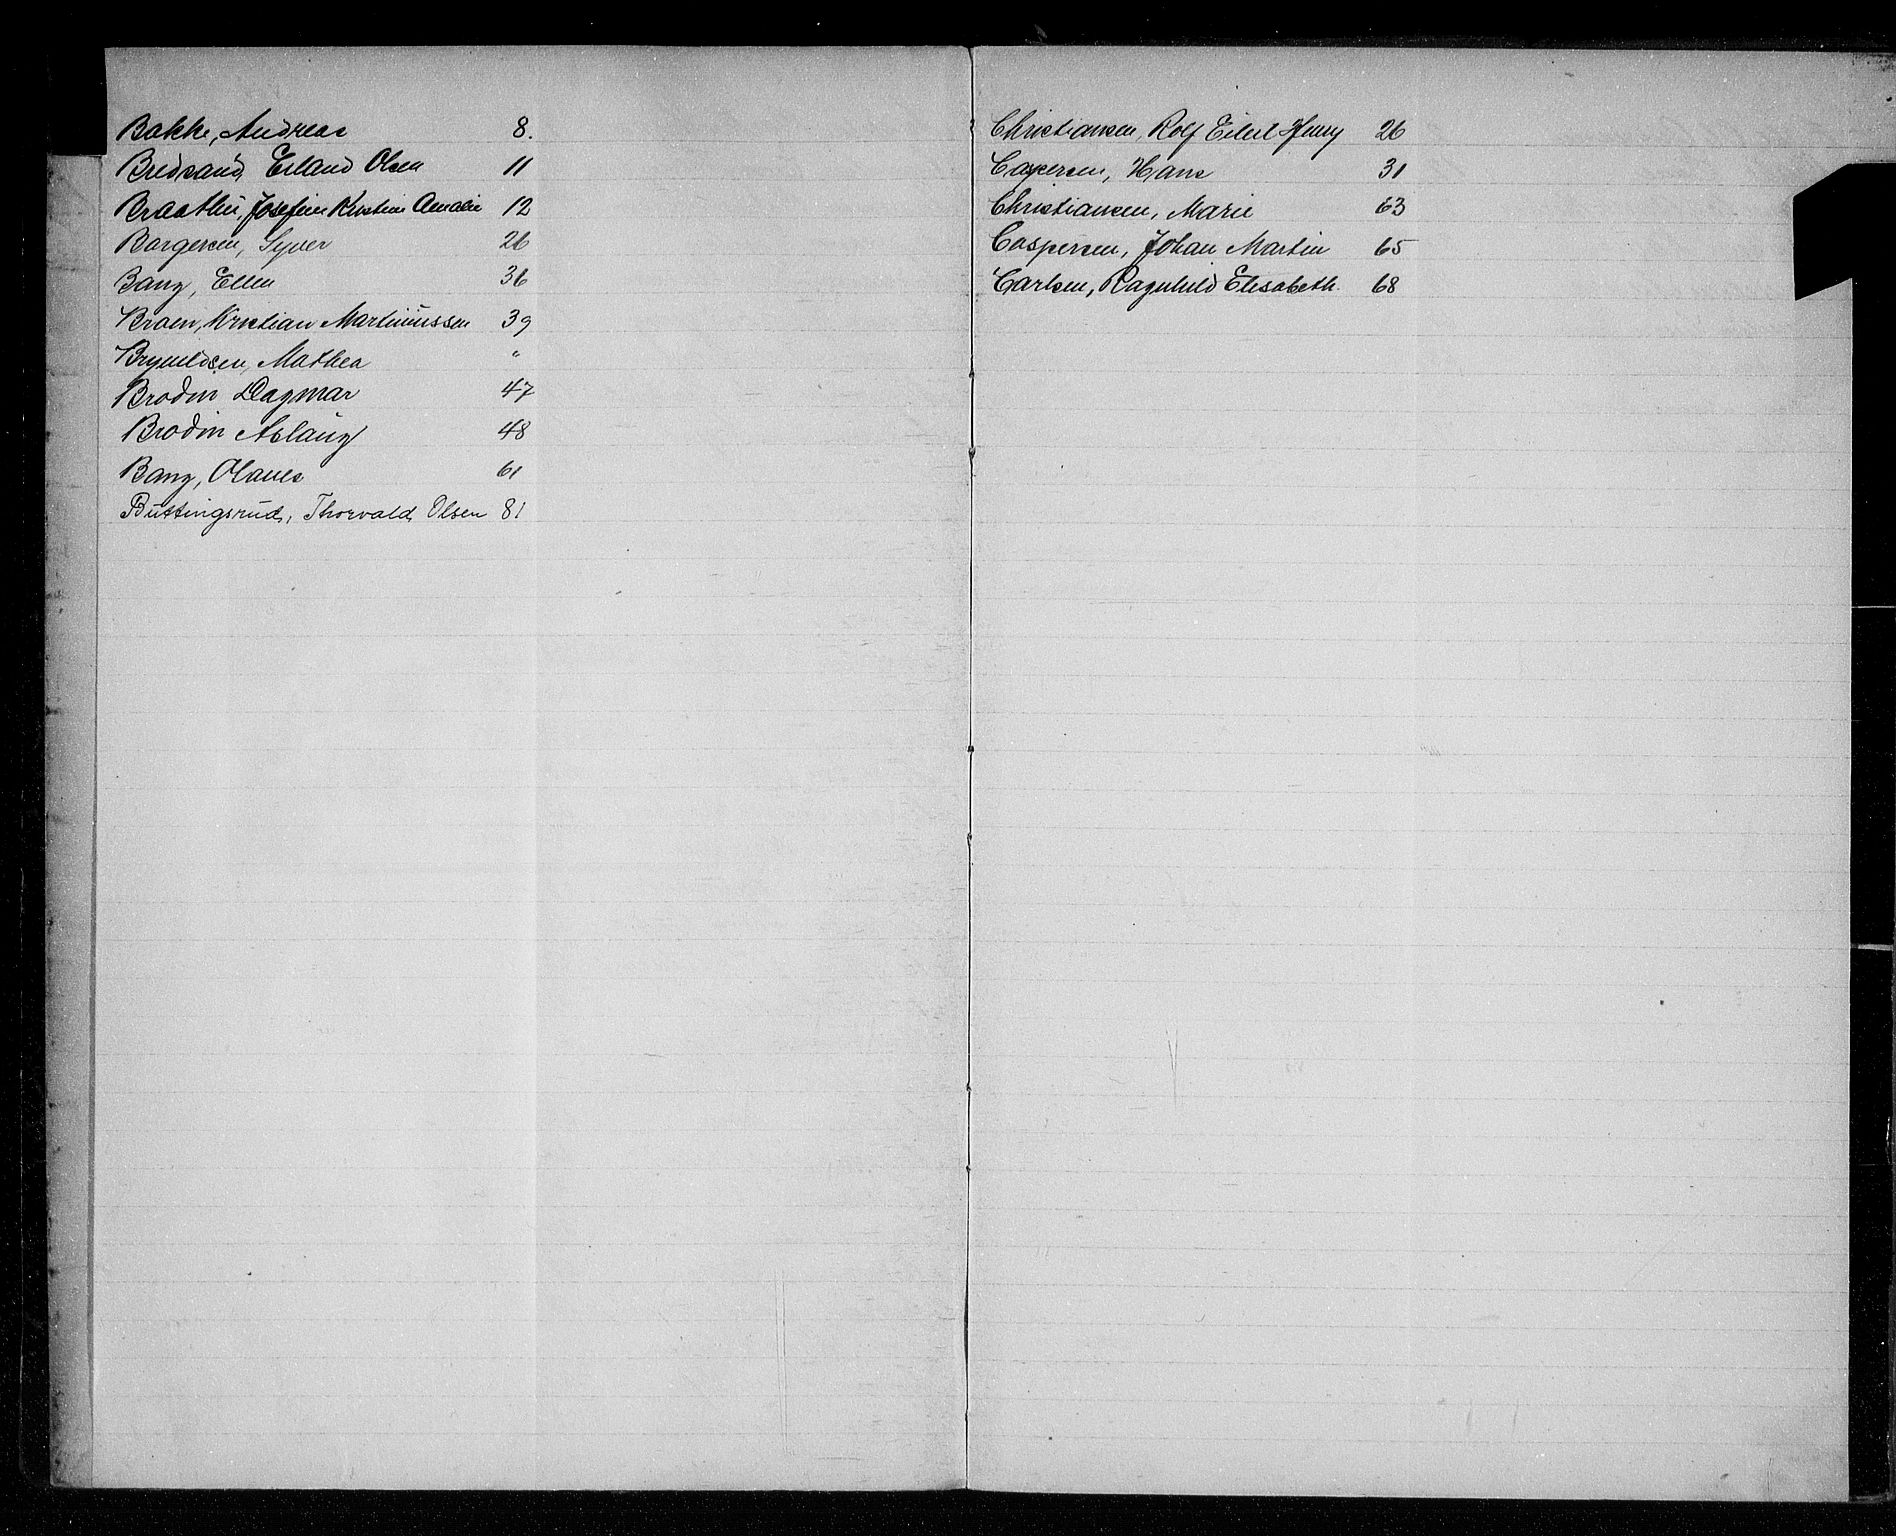 Bakke, Andreas 8.
Bredsand, Erland Olsen 11
Braathen, Josefine Kristine Amalie 12
Borgersen, Syver 26
Bang, Ellen 36
Braen, Kristian Martinussen 39
Brynildsen, Mathea "
Brodin Dagmar 47
Brodin Aslaug 48
Bang, Olaves 61
Buttingsrud, Thorvald Olsen 81
Christiansen, Rolf Eilert Henry 26
Caspersen, Hans 31
Christiansen, Marie 63
Caspersen, Johan Martin 65
Carlsen, Ragnhild Elisabeth. 68